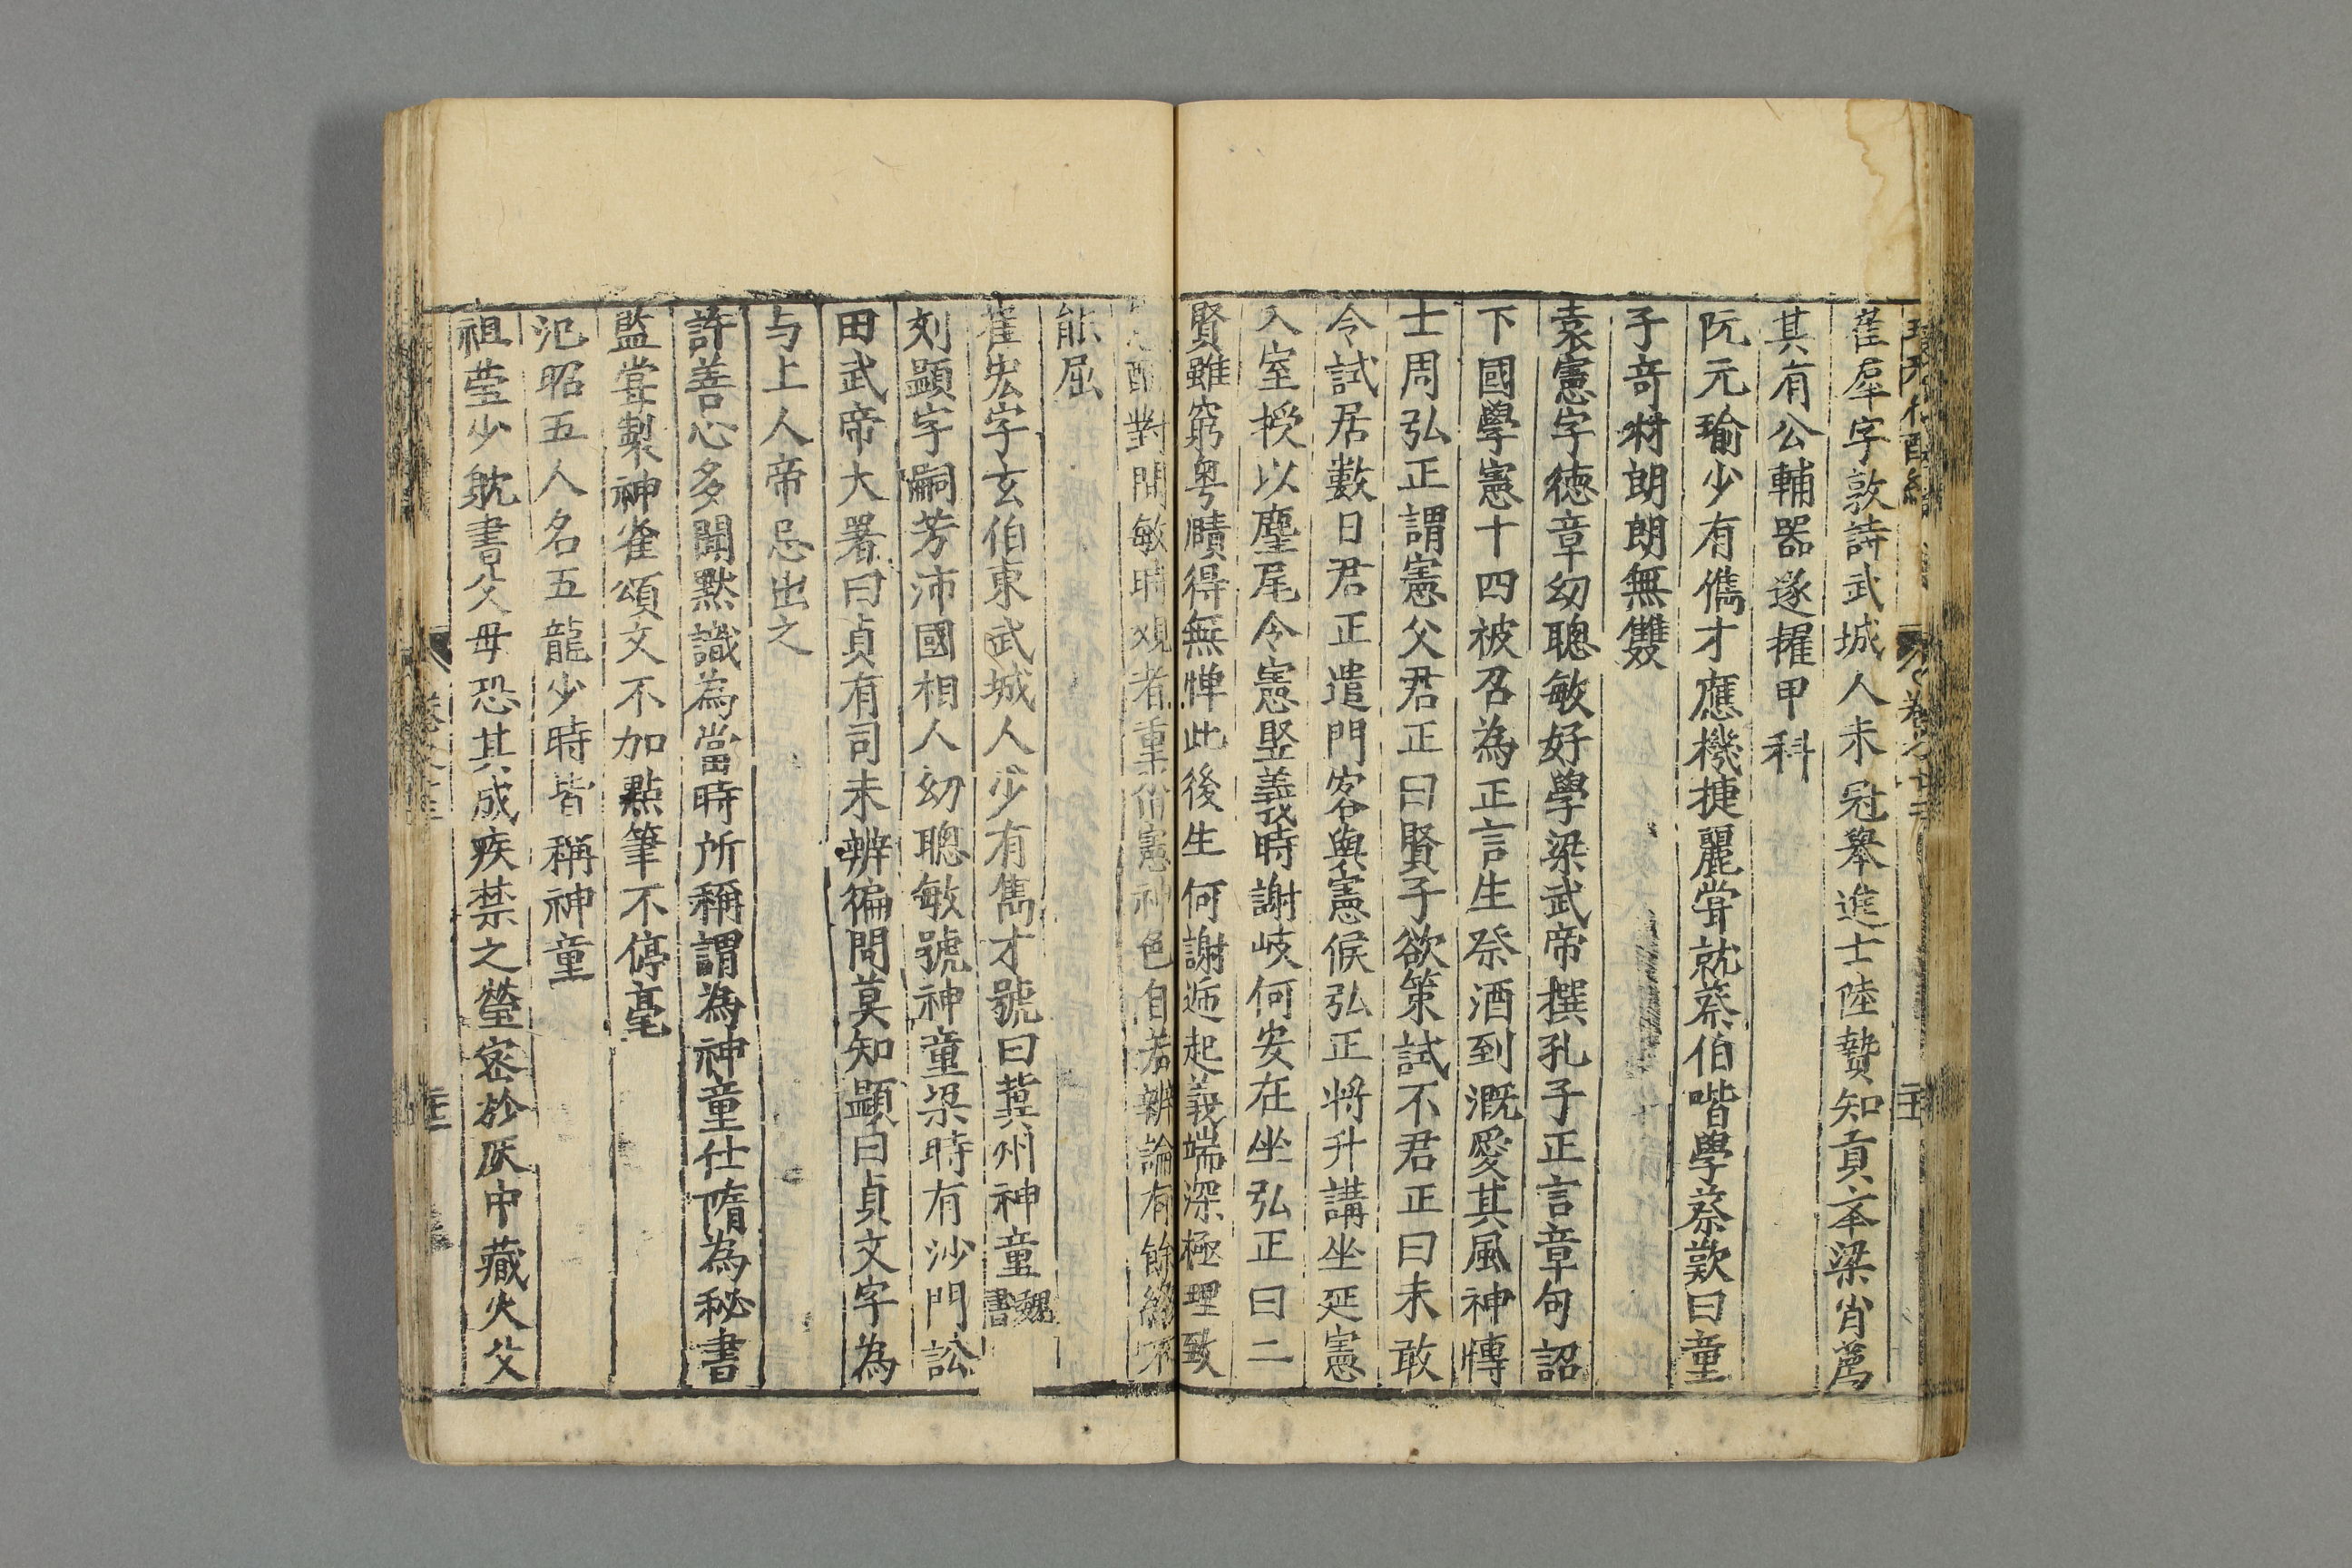 卷之廿三
崔羣字敦詩武城人未冠舉進士陸贄知貢夲梁肖薦
其有公輔器遂擢甲科
阮元瑜少有儁才應機捷麗甞就蔡伯喈學蔡歎曰童
子竒材朗朗無雙
袁憲字徳章幼聰敏好學梁武帝撰孔子正言章句詔
下國學憲十四被召為正言生祭酒到溉愛其風神愽
士周弘正謂憲父君正曰賢子欲策試不君正曰未敢
令試居數日君正遣門客與憲候弘正將升講坐延憲
入室授以麈尾令憲竪義時謝岐何安在坐弘正曰二
賢雖窮粤賾得無憚此後生何謝逓起義端深極理致
酬對閒敏時觀者重沓憲神色自若辨論有餘終不
能屈
崔宏字玄伯東武城人少有雋才號曰冀州神童魏書
刘顯字嗣芳沛國相人幼聰敏號神童梁時有沙門訟
田武帝大署曰貞有司未辨徧問莫知顯曰貞文字為
与上人帝忌出之
許善心多聞默識為當時所稱謂為神童仕隋為秘書
監甞製神雀頌文不加點筆不停毫
氾昭五人名五龍少時皆稱神童
祖瑩少躭書父母恐其成疾禁之瑩密於灰中藏火父